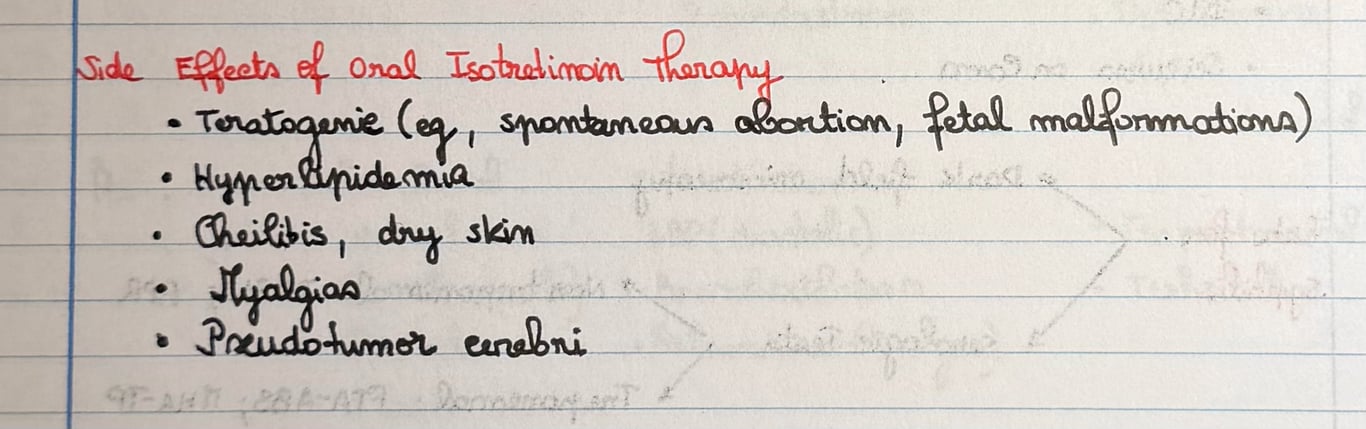 Side Effects of Oral Isotretinoin Therapy
• Teratogenic (eg, spontaneous abortion, fetal malformations)
• Hyperlipidemia
• Cheilitis, dry skin
• Myalgias
• Pseudotumor cerebri